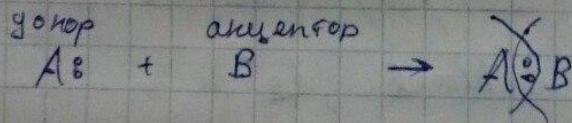 донор акцептор
A: + B → A:B